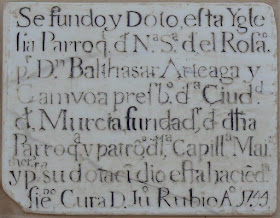 Se fundo y Doto, esta Ygle
sia Parroq. d. Nª. Sª. d el Rosª.
pr. Dn. Balthasar Arteaga y
Gamvoa presbº. d. ª Ciud.
d. Murcia fundad.r d. dha
Parroqª y patrº Capillª. Mai.
y pr. su dotaci dio esta haciēd.
siē Cura D. Jū Rubio Aº.